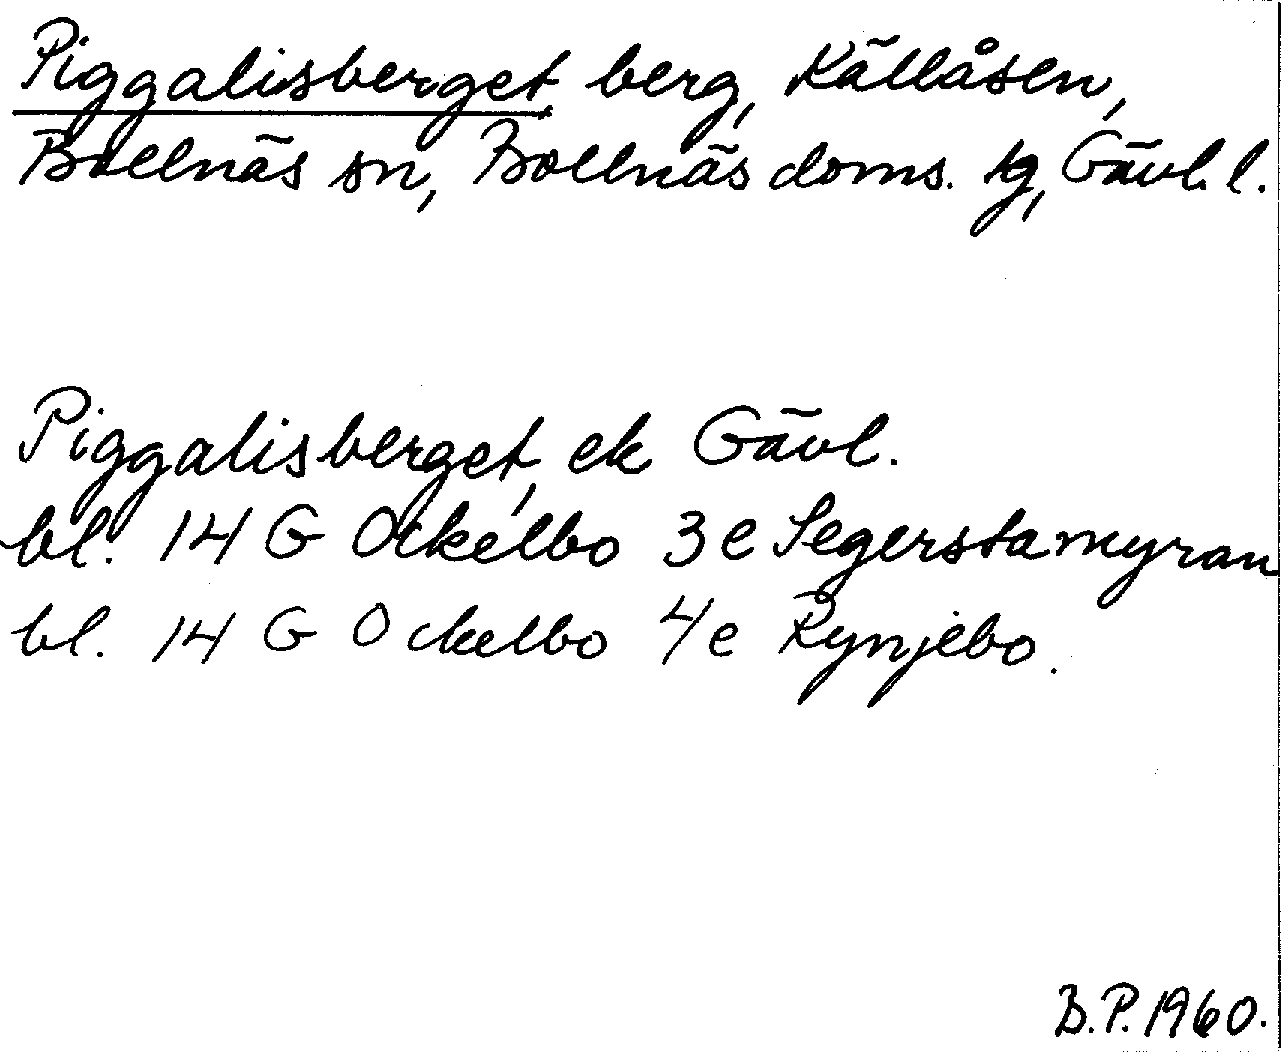 Piggalisberget, berg, Källåsen,
Bollnäs sn, Bollnäs doms. tg, Gävl. l.
Piggalisberget, ek Gävl.
bl. 14 G Ockelbo 3 e Segerstamyran
bl. 14 G Ockelbo 4 e Rynjebo.
B.P. 1960.